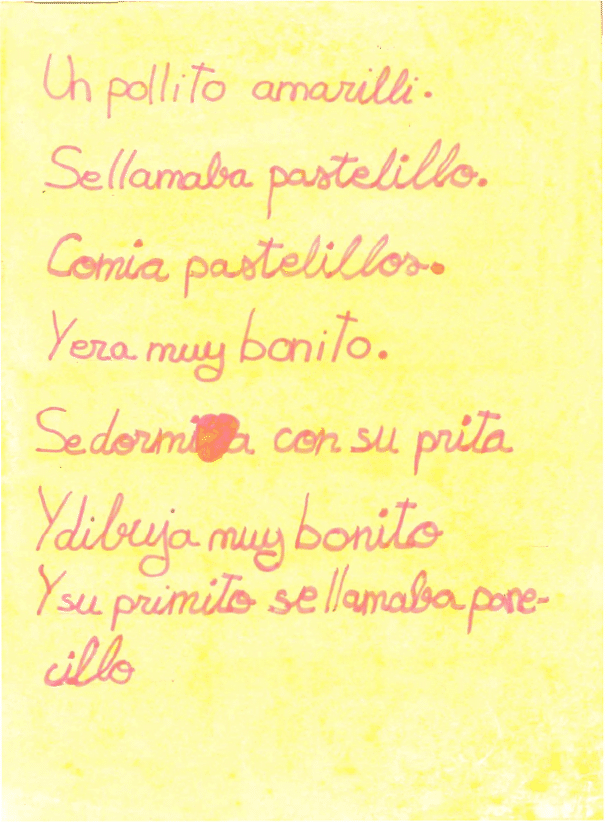 Un pollito amarilli.
Sellamaba pastelillo.
Comia pastelillos.
Yera muy bonito.
Sedormia con su prita
Ydibuja muy bonito
Y su primito se llamaba pane-
cillo